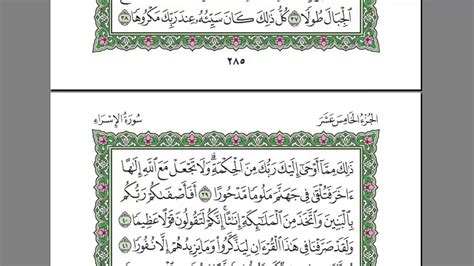 ٱلۡجِبَالَ طُولٗا ٣٧ كُلُّ ذَٰلِكَ كَانَ سَيِّئُهُۥ عِندَ رَبِّكَ مَكۡرُوهٗا ٣٨
٢٨٥
الجزء الخامس عشر سورة الإسراء
ذَٰلِكَ مِمَّآ أَوۡحَىٰٓ إِلَيۡكَ رَبُّكَ مِنَ ٱلۡحِكۡمَةِۗ وَلَا تَجۡعَلۡ مَعَ ٱللَّهِ إِلَٰهًا
ءَاخَرَ فَتُلۡقَىٰ فِي جَهَنَّمَ مَلُومٗا مَّدۡحُورًا ٣٩ أَفَأَصۡفَىٰكُمۡ رَبُّكُم
بِٱلۡبَنِينَ وَٱتَّخَذَ مِنَ ٱلۡمَلَٰٓئِكَةِ إِنَٰثًاۚ إِنَّكُمۡ لَتَقُولُونَ قَوۡلًا عَظِيمٗا ٤٠
وَلَقَدۡ صَرَّفۡنَا فِي هَٰذَا ٱلۡقُرۡءَانِ لِيَذَّكَّرُواْ وَمَا يَزِيدُهُمۡ إِلَّا نُفُورٗا ٤١